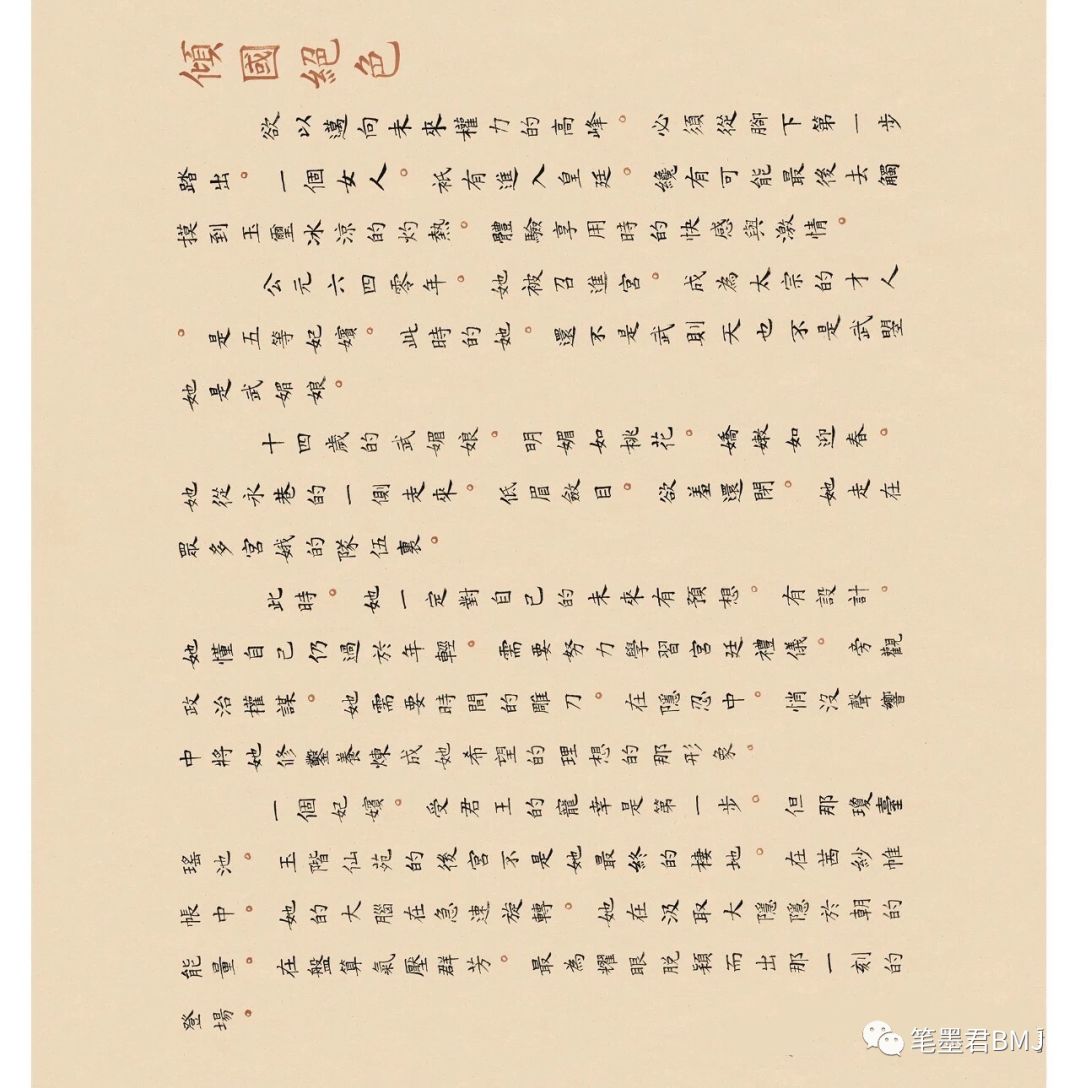 傾國絕色
欲以邁向未來權力的高峰。必須從腳下第一步
踏出。一個女人。衹有進入皇廷。纔有可能最後去觸
摸到玉璽冰涼的灼熱。體驗享用時的快感與激情。
公元六四零年。她被召進宮。成為太宗的才人
。是五等妃嬪。此時的她。還不是武則天也不是武曌
她是武媚娘。
十四歲的武媚娘。明媚如桃花。嬌嫩如迎春。
她從永巷的一側走來。低眉斂目。欲羞還閉。她走在
眾多宮娥的隊伍裏。
此時。她一定對自己的未來有預想。有設計。
她懂自己仍過於年輕。需要努力學習宮廷禮儀。旁觀
政治權謀。她需要時間的雕刀。在隱忍中。悄沒聲響
中將她修鑿養煉成她希望的理想的那形象。
一個妃嬪。受君王的寵幸是第一步。但那瓊臺
瑤池。玉階仙苑的後宮不是她最終的棲地。在茜紗帷
帳中。她的大腦在急速旋轉。她在汲取大隱隱於朝的
能量。在盤算氣壓群芳。最為耀眼脫穎而出那一刻的
登場。
笔墨君BMJ